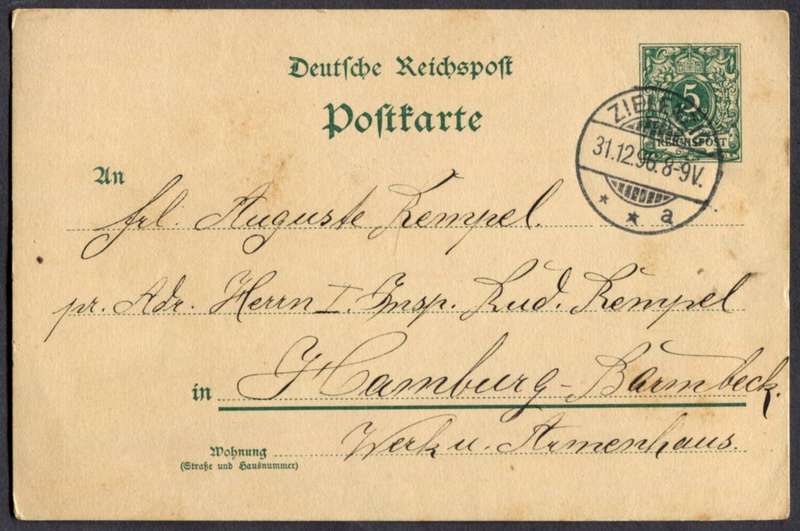 Deutsche Reichspost
Postkarte
5
REICHSPOST
31.12.96.8-9V.
a
An
Frl. Auguste Kempel.
pr. Adr. Herrn I. Insp. Rud. Kempel
in Hamburg-Barmbeck.
Werk u. Armenhaus.
Wohnung
(Straße und Hausnummer)